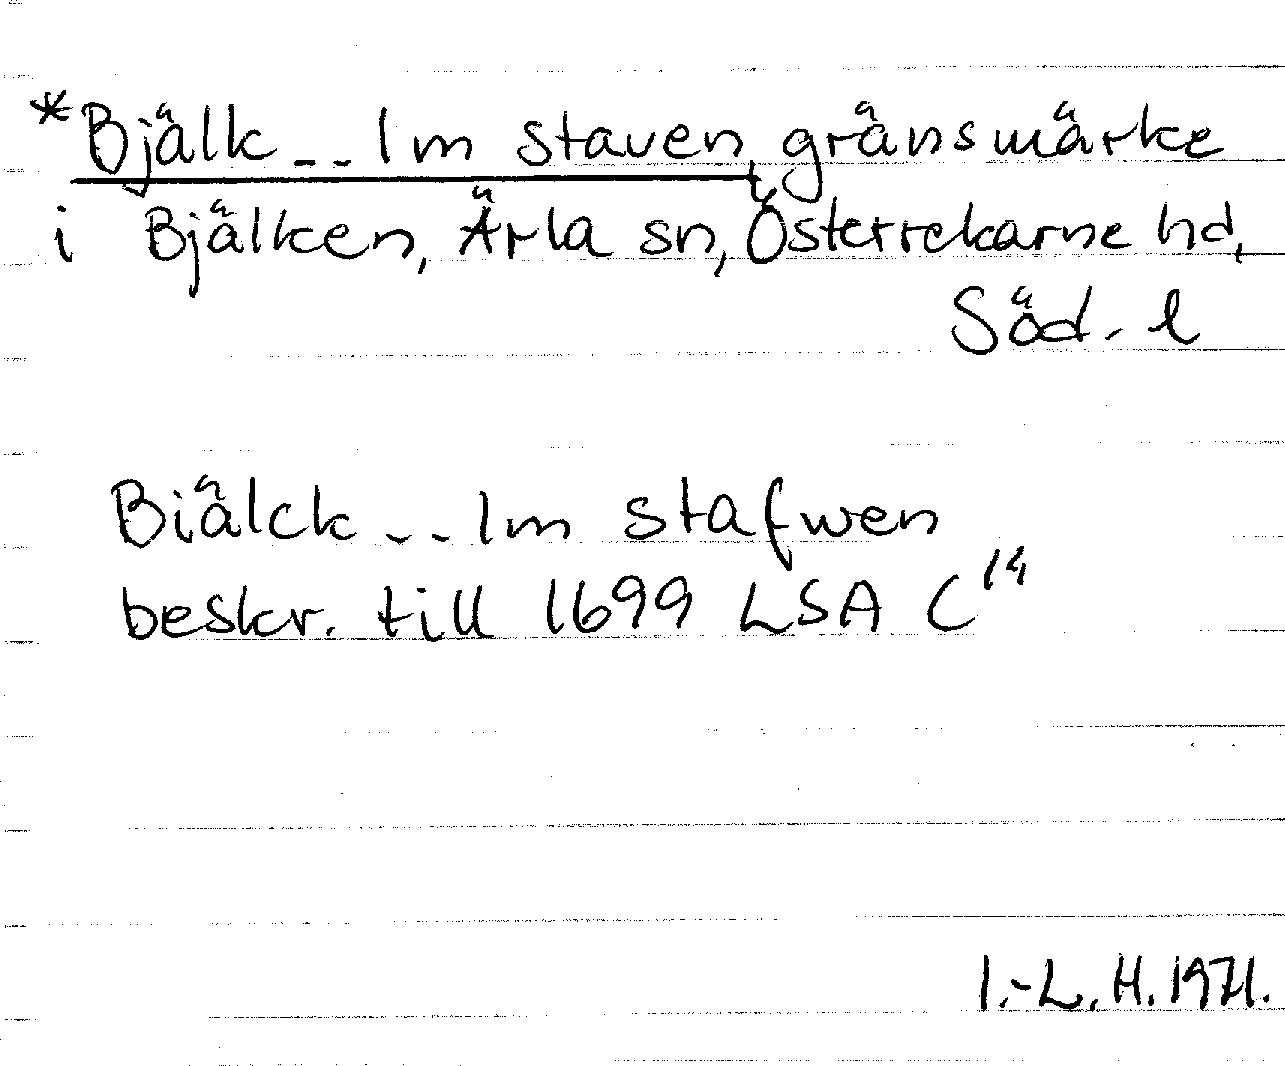 *Bjälk - - lm staven, gränsmärke
i Bjälken, Ärla sn, Österrekarne hd,
Söd. l
Biälck - - lm stafwen
beskr. till 1699 LSA C 14
I.-L. H. 1971.